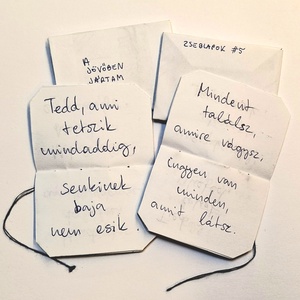 A
JÖVŐBEN
JÁRTAM
ZSEBLAPOK #5
Tedd, ami
tetszik
mindaddig,
senkinek
baja
nem esik.
Mindent
találsz,
amire vágysz,
ingyen van
minden,
amit látsz.